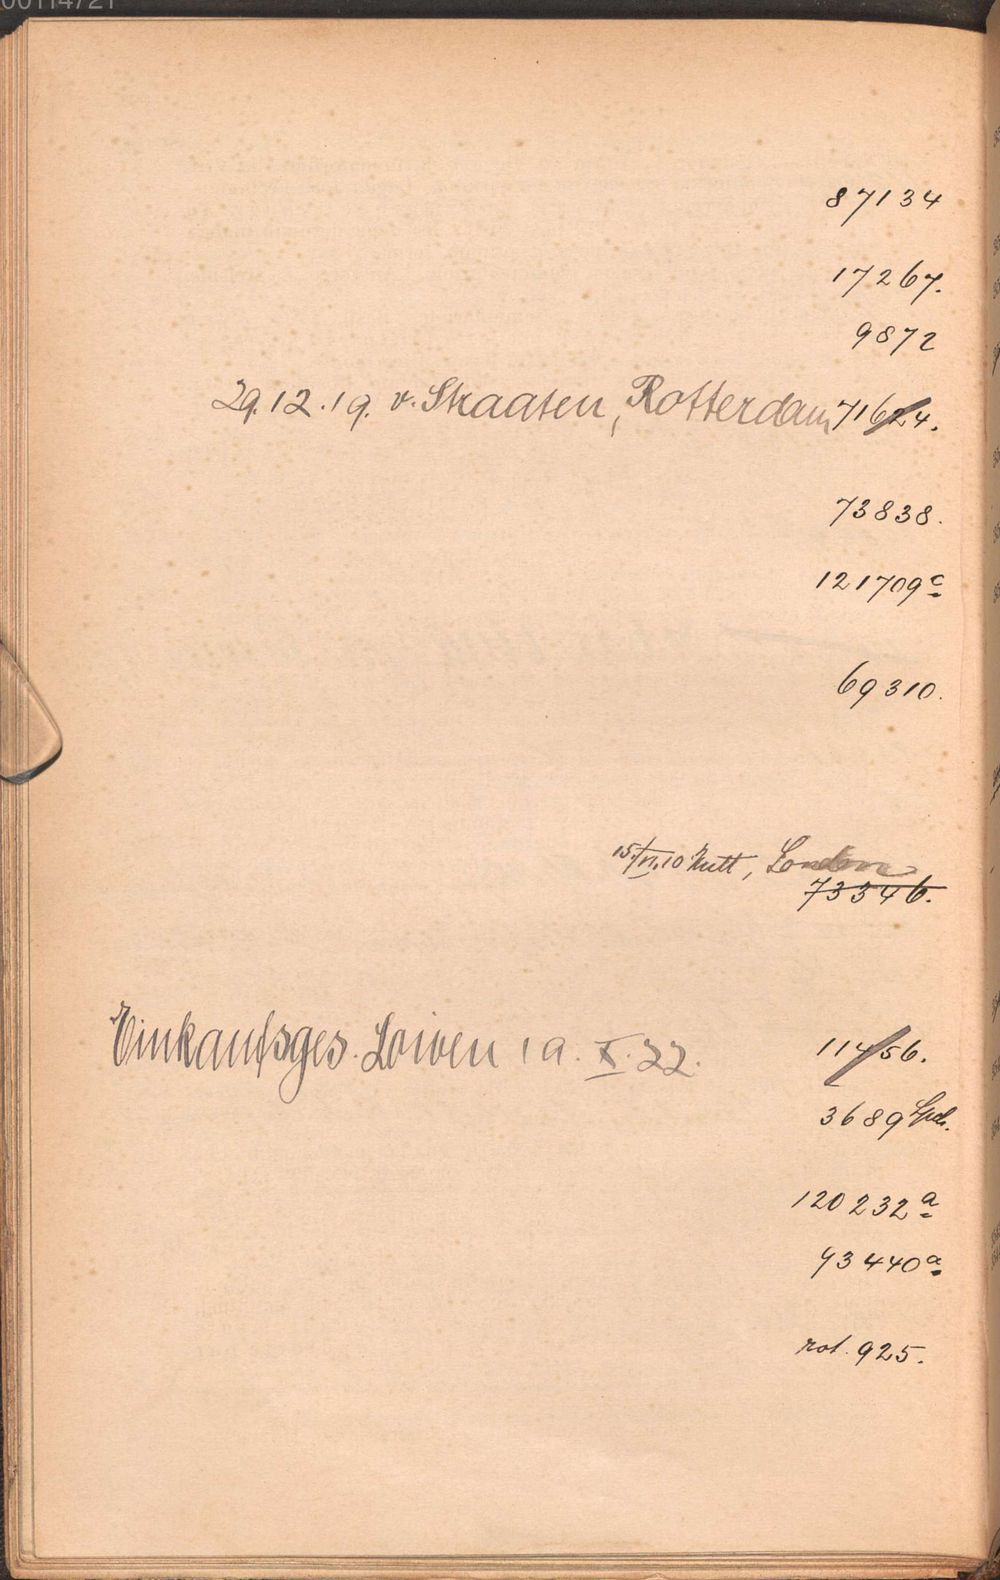 00114721
87134
17267.
9872
29.12.19. v. Straaten, Rotterdam 71624.
73838.
121709c
69310.
15./VI.10 Nutt, London
73346.
Einkaufsges. Löwen 19. X. 22. 11456.
3689 Spch.
120232a
93440a
rot. 925.